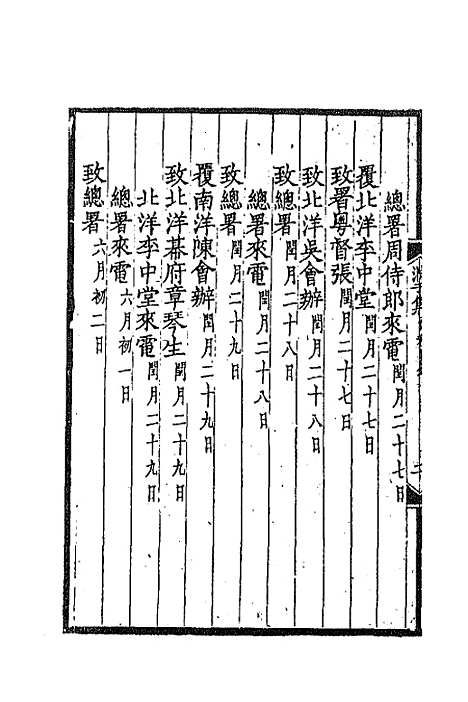 總署周侍郎來電 閏月二十七日
覆北洋李中堂 閏月二十七日
致署粵督張 閏月二十七日
致北洋吳會辦 閏月二十八日
致總署 閏月二十八日
總署來電 閏月二十八日
致總署 閏月二十九日
覆南洋陳會辦 閏月二十九日
致北洋幕府章琴生 閏月二十九日
北洋李中堂來電 閏月二十九日
總署來電 六月初一日
致總署 六月初二日